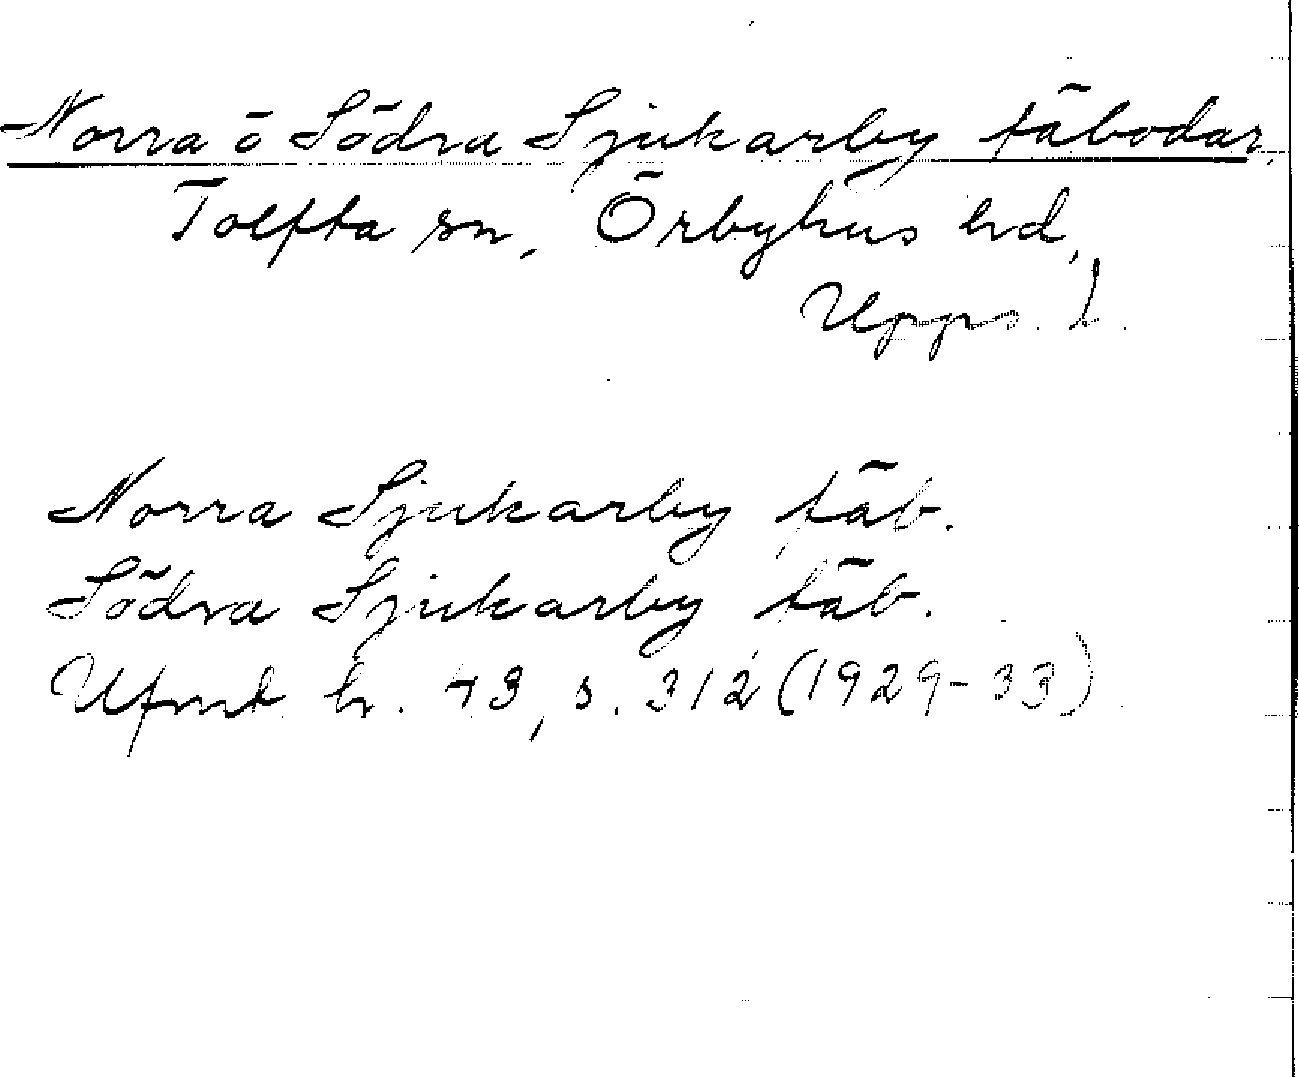 Norra o Södra Sjukarby fäbodar,
Tolfta sn, Örbyhus hd,
Upps. l.
Norra Sjukarby fäb.
Södra Sjukarby fäb.
Ufmt h. 43, s. 312 (1929-33)